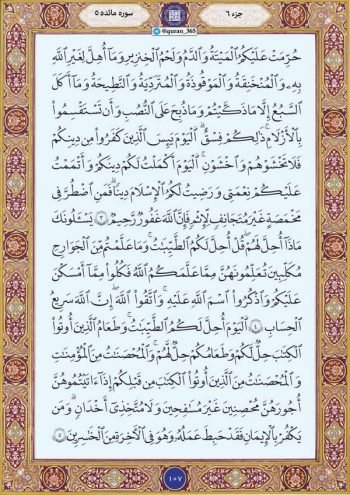 جزء ۶
@quran_365
سوره مائده ۵
حُرِّمَتْ عَلَيْكُمُ الْمَيْتَةُ وَالدَّمُ وَلَحْمُ الْخِنزِيرِ وَمَا أُهِلَّ لِغَيْرِ اللَّهِ
بِهِ وَالْمُنْخَنِقَةُ وَالْمَوْقُوذَةُ وَالْمُتَرَدِّيَةُ وَالنَّطِيحَةُ وَمَا أَكَلَ
السَّبُعُ إِلَّا مَا ذَكَّيْتُمْ وَمَا ذُبِحَ عَلَى النُّصُبِ وَأَن تَسْتَقْسِمُوا
بِالْأَزْلَامِ ذَٰلِكُمْ فِسْقٌ الْيَوْمَ يَئِسَ الَّذِينَ كَفَرُوا مِن دِينِكُمْ
فَلَا تَخْشَوْهُمْ وَاخْشَوْنِ الْيَوْمَ أَكْمَلْتُ لَكُمْ دِينَكُمْ وَأَتْمَمْتُ
عَلَيْكُمْ نِعْمَتِي وَرَضِيتُ لَكُمُ الْإِسْلَامَ دِينًا فَمَنِ اضْطُرَّ فِي
مَخْمَصَةٍ غَيْرَ مُتَجَانِفٍ لِّإِثْمٍ فَإِنَّ اللَّهَ غَفُورٌ رَّحِيمٌ ٣ يَسْأَلُونَكَ
مَاذَا أُحِلَّ لَهُمْ قُلْ أُحِلَّ لَكُمُ الطَّيِّبَاتُ وَمَا عَلَّمْتُم مِّنَ الْجَوَارِحِ
مُكَلِّبِينَ تُعَلِّمُونَهُنَّ مِمَّا عَلَّمَكُمُ اللَّهُ فَكُلُوا مِمَّا أَمْسَكْنَ
عَلَيْكُمْ وَاذْكُرُوا اسْمَ اللَّهِ عَلَيْهِ وَاتَّقُوا اللَّهَ إِنَّ اللَّهَ سَرِيعُ
الْحِسَابِ ٤ الْيَوْمَ أُحِلَّ لَكُمُ الطَّيِّبَاتُ وَطَعَامُ الَّذِينَ أُوتُوا
الْكِتَابَ حِلٌّ لَّكُمْ وَطَعَامُكُمْ حِلٌّ لَّهُمْ وَالْمُحْصَنَاتُ مِنَ الْمُؤْمِنَاتِ
وَالْمُحْصَنَاتُ مِنَ الَّذِينَ أُوتُوا الْكِتَابَ مِن قَبْلِكُمْ إِذَا آتَيْتُمُوهُنَّ
أُجُورَهُنَّ مُحْصِنِينَ غَيْرَ مُسَافِحِينَ وَلَا مُتَّخِذِي أَخْدَانٍ وَمَن
يَكْفُرْ بِالْإِيمَانِ فَقَدْ حَبِطَ عَمَلُهُ وَهُوَ فِي الْآخِرَةِ مِنَ الْخَاسِرِينَ ٥
١٠٧